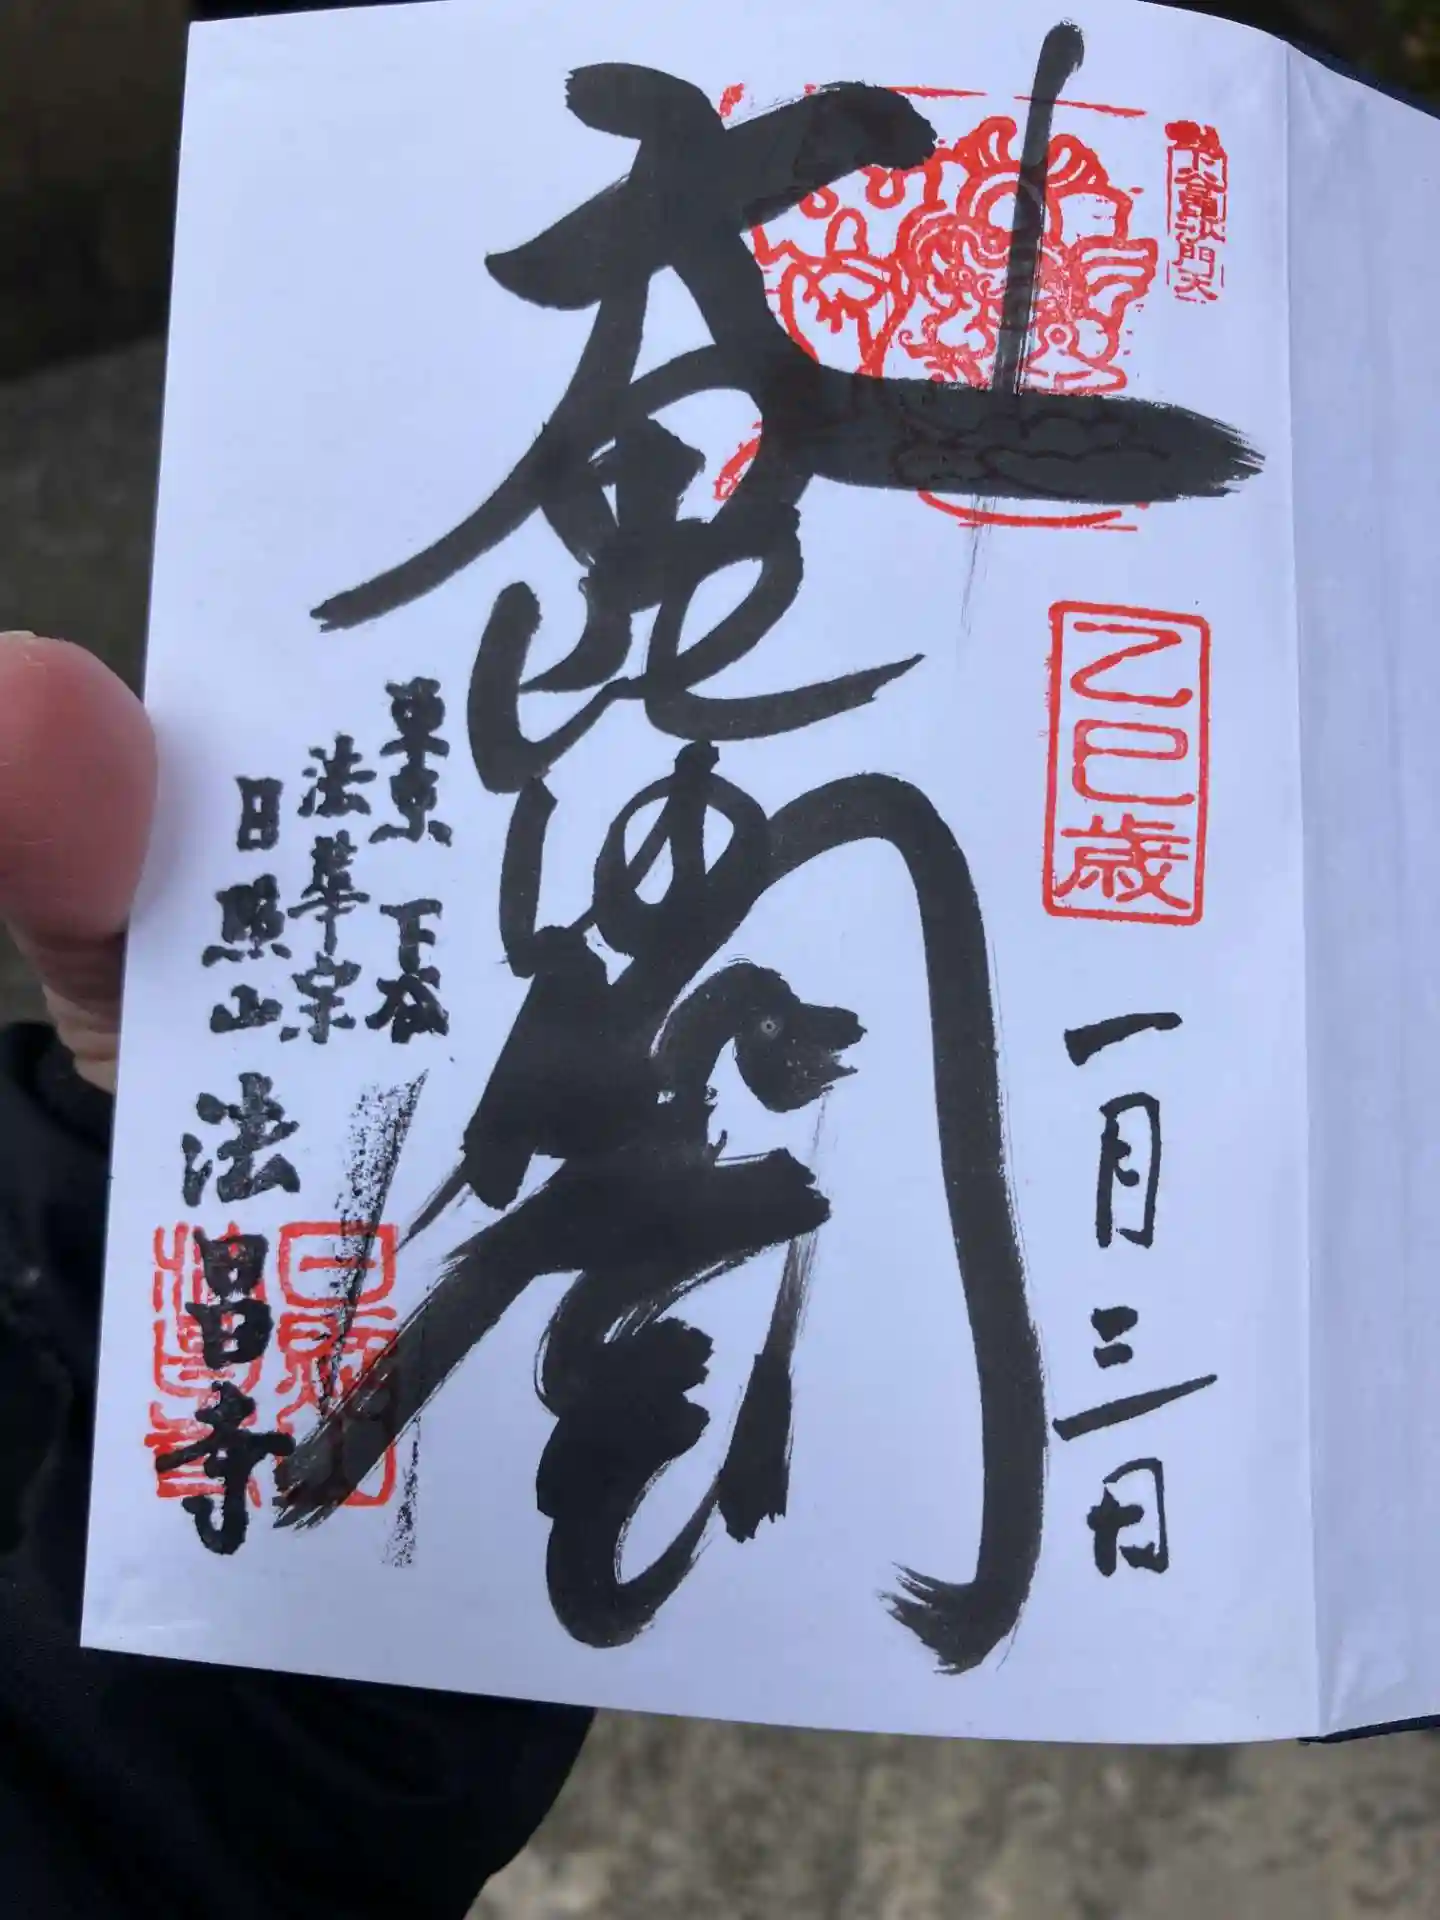 下谷毘沙門天
乙巳歳
一月三日
大毘沙門天王
東京 下谷
法華宗
日照山 法昌寺
日照山
法昌寺